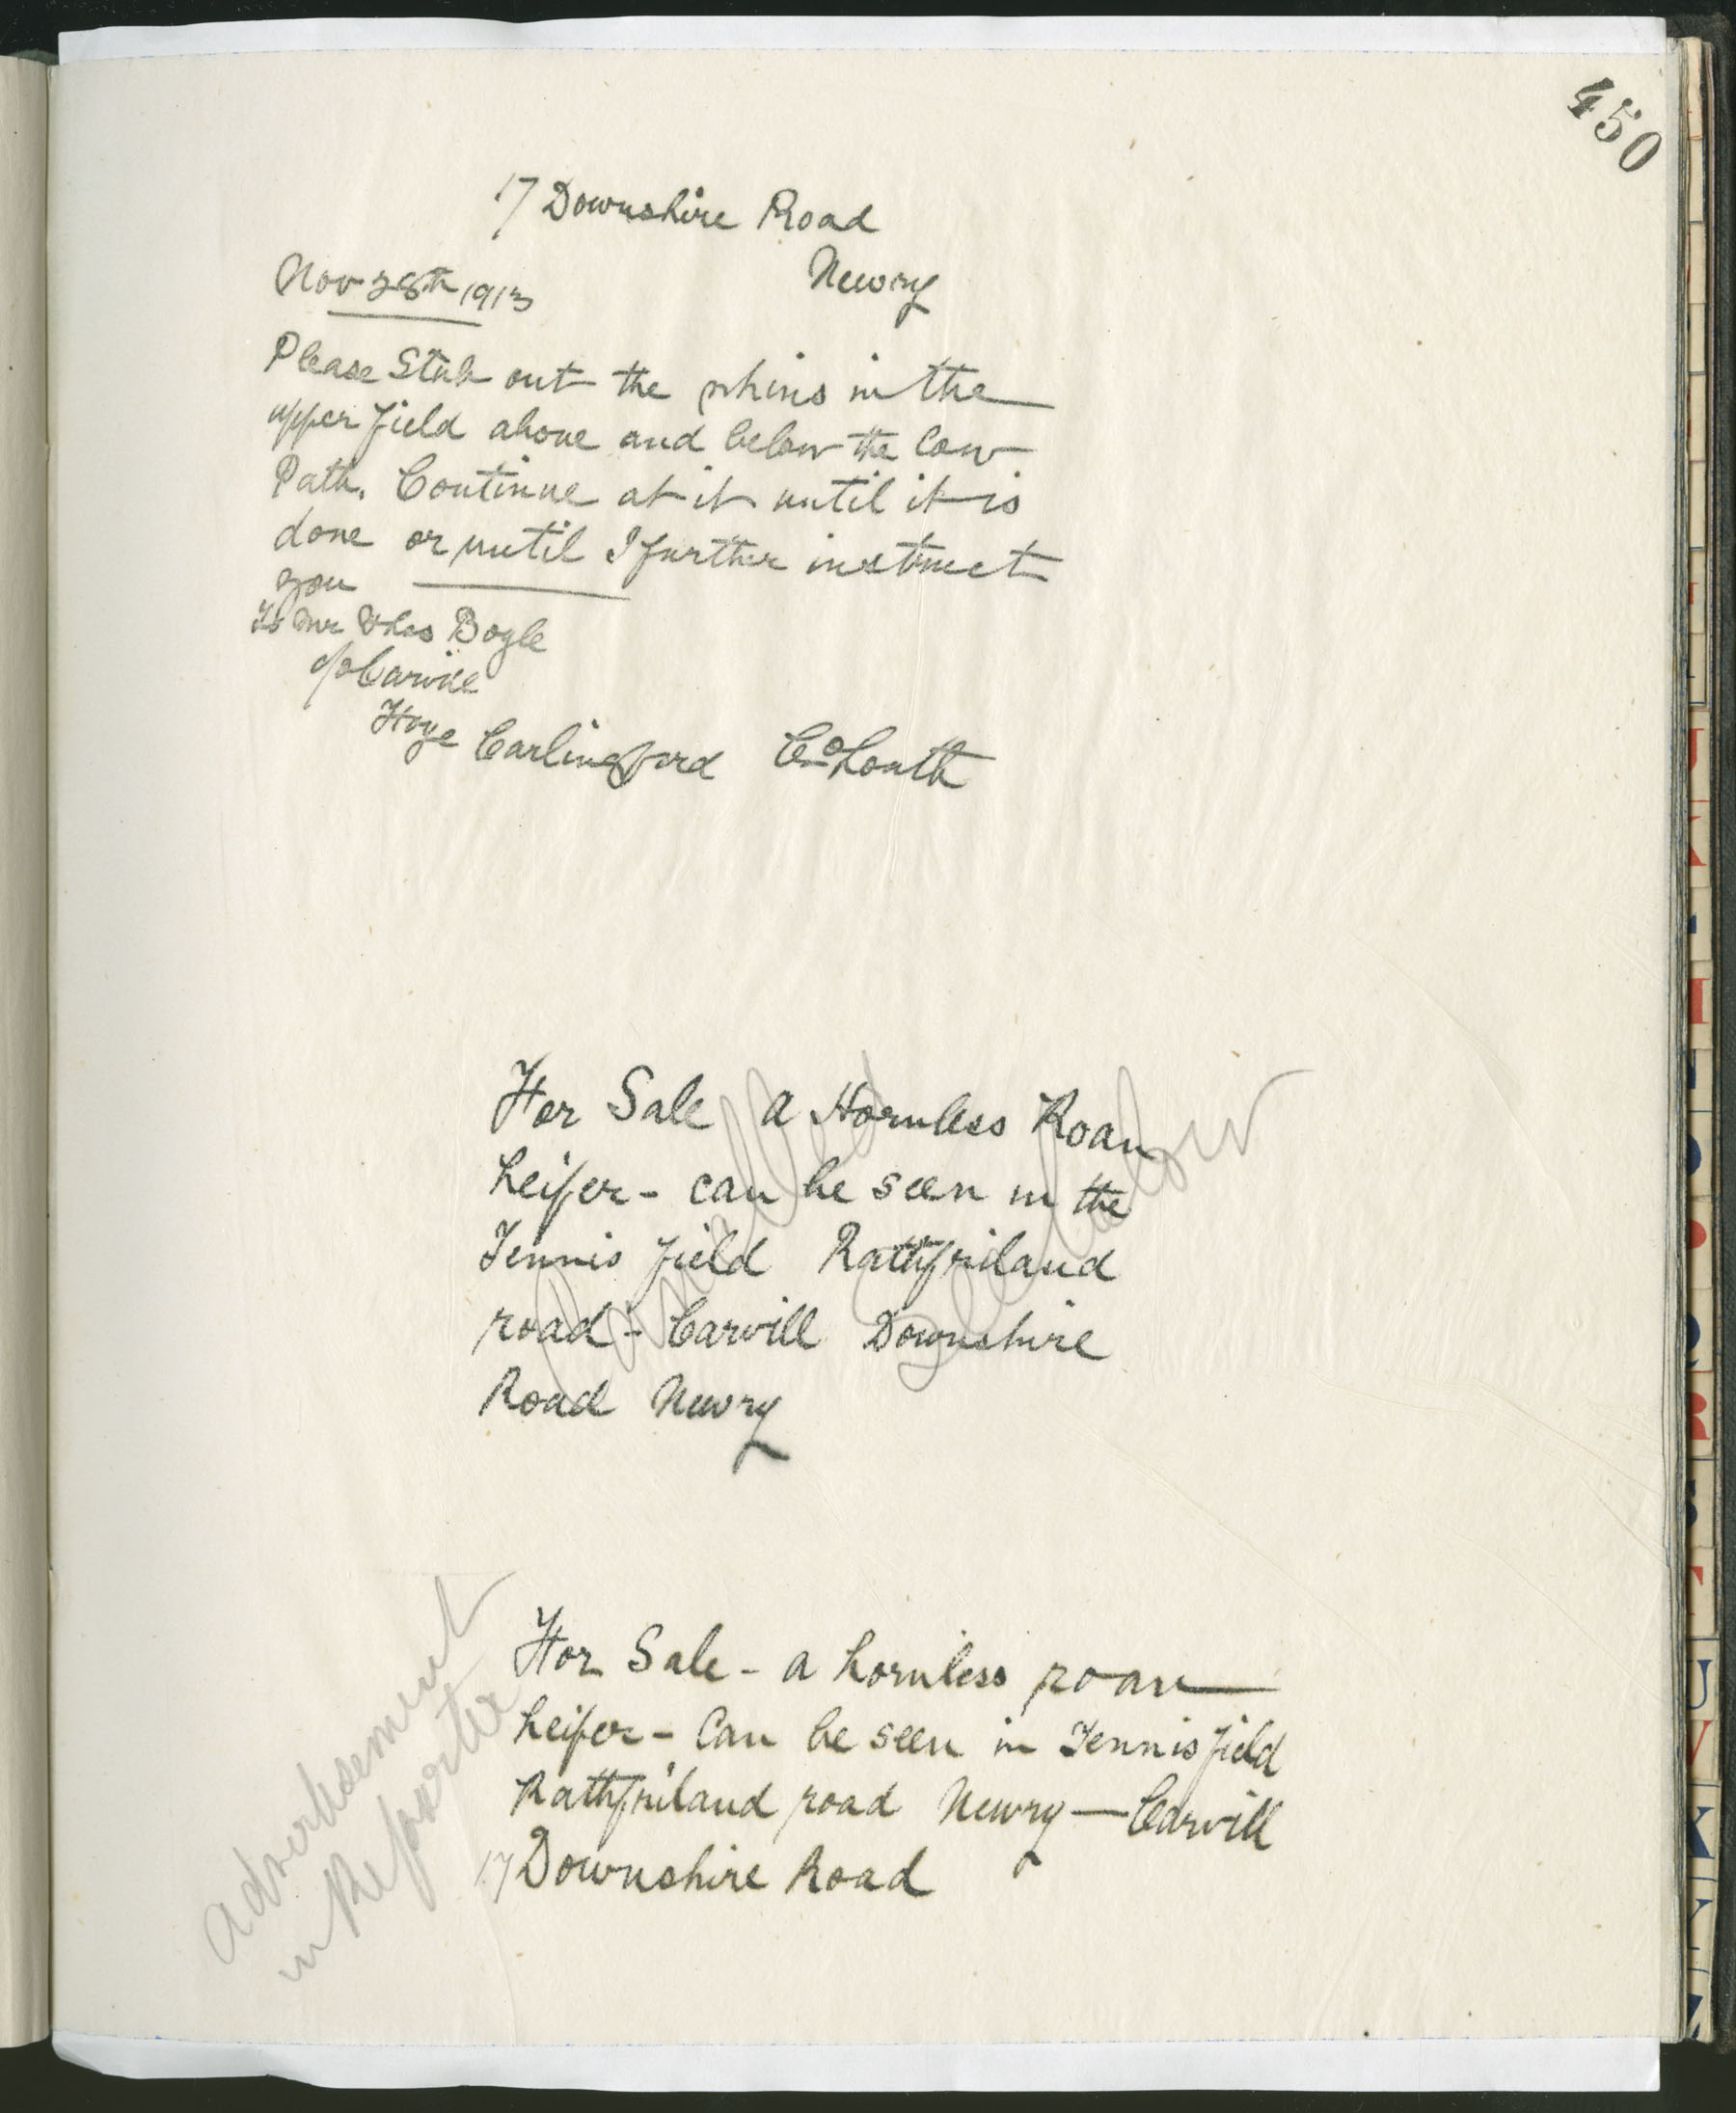 450
17 Downshire Road
Newry
Nov 28th 1913
Please Stub out the whins in the
upper field above and below the Cow
Path. Continue at it until it is
done or until I further instruct
you
To Mr Thos Boyle
c/o
Carlingford Co Louth
For Sale a Hornless Roan
heifer - can be seen in the
Tennis field Rathfriland
road - Carvill Downshire
Road Newry
Cancelled
See below
For Sale - a hornless roan
heifer - Can be seen in Tennis field
Rathfriland road Newry — Carvill
17 Downshire Road
advertisement
in Reporter